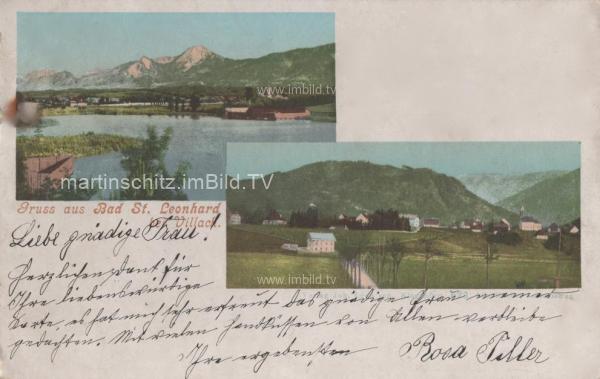 www.imbild.tv
martinschitz.imBild.TV
www.imbild.tv
www.imbild.tv
Gruss aus Bad St. Leonhard
bei Villach.
Liebe gnädige Frau!
Herzlichen dank für
Ihre liebenswürtige
Karte, es hat mich sehr erfreut das gnädige Frau meiner
gedachten. Mit vielen handküssen von Allen verbleibe
Ihre ergebensten Rosa